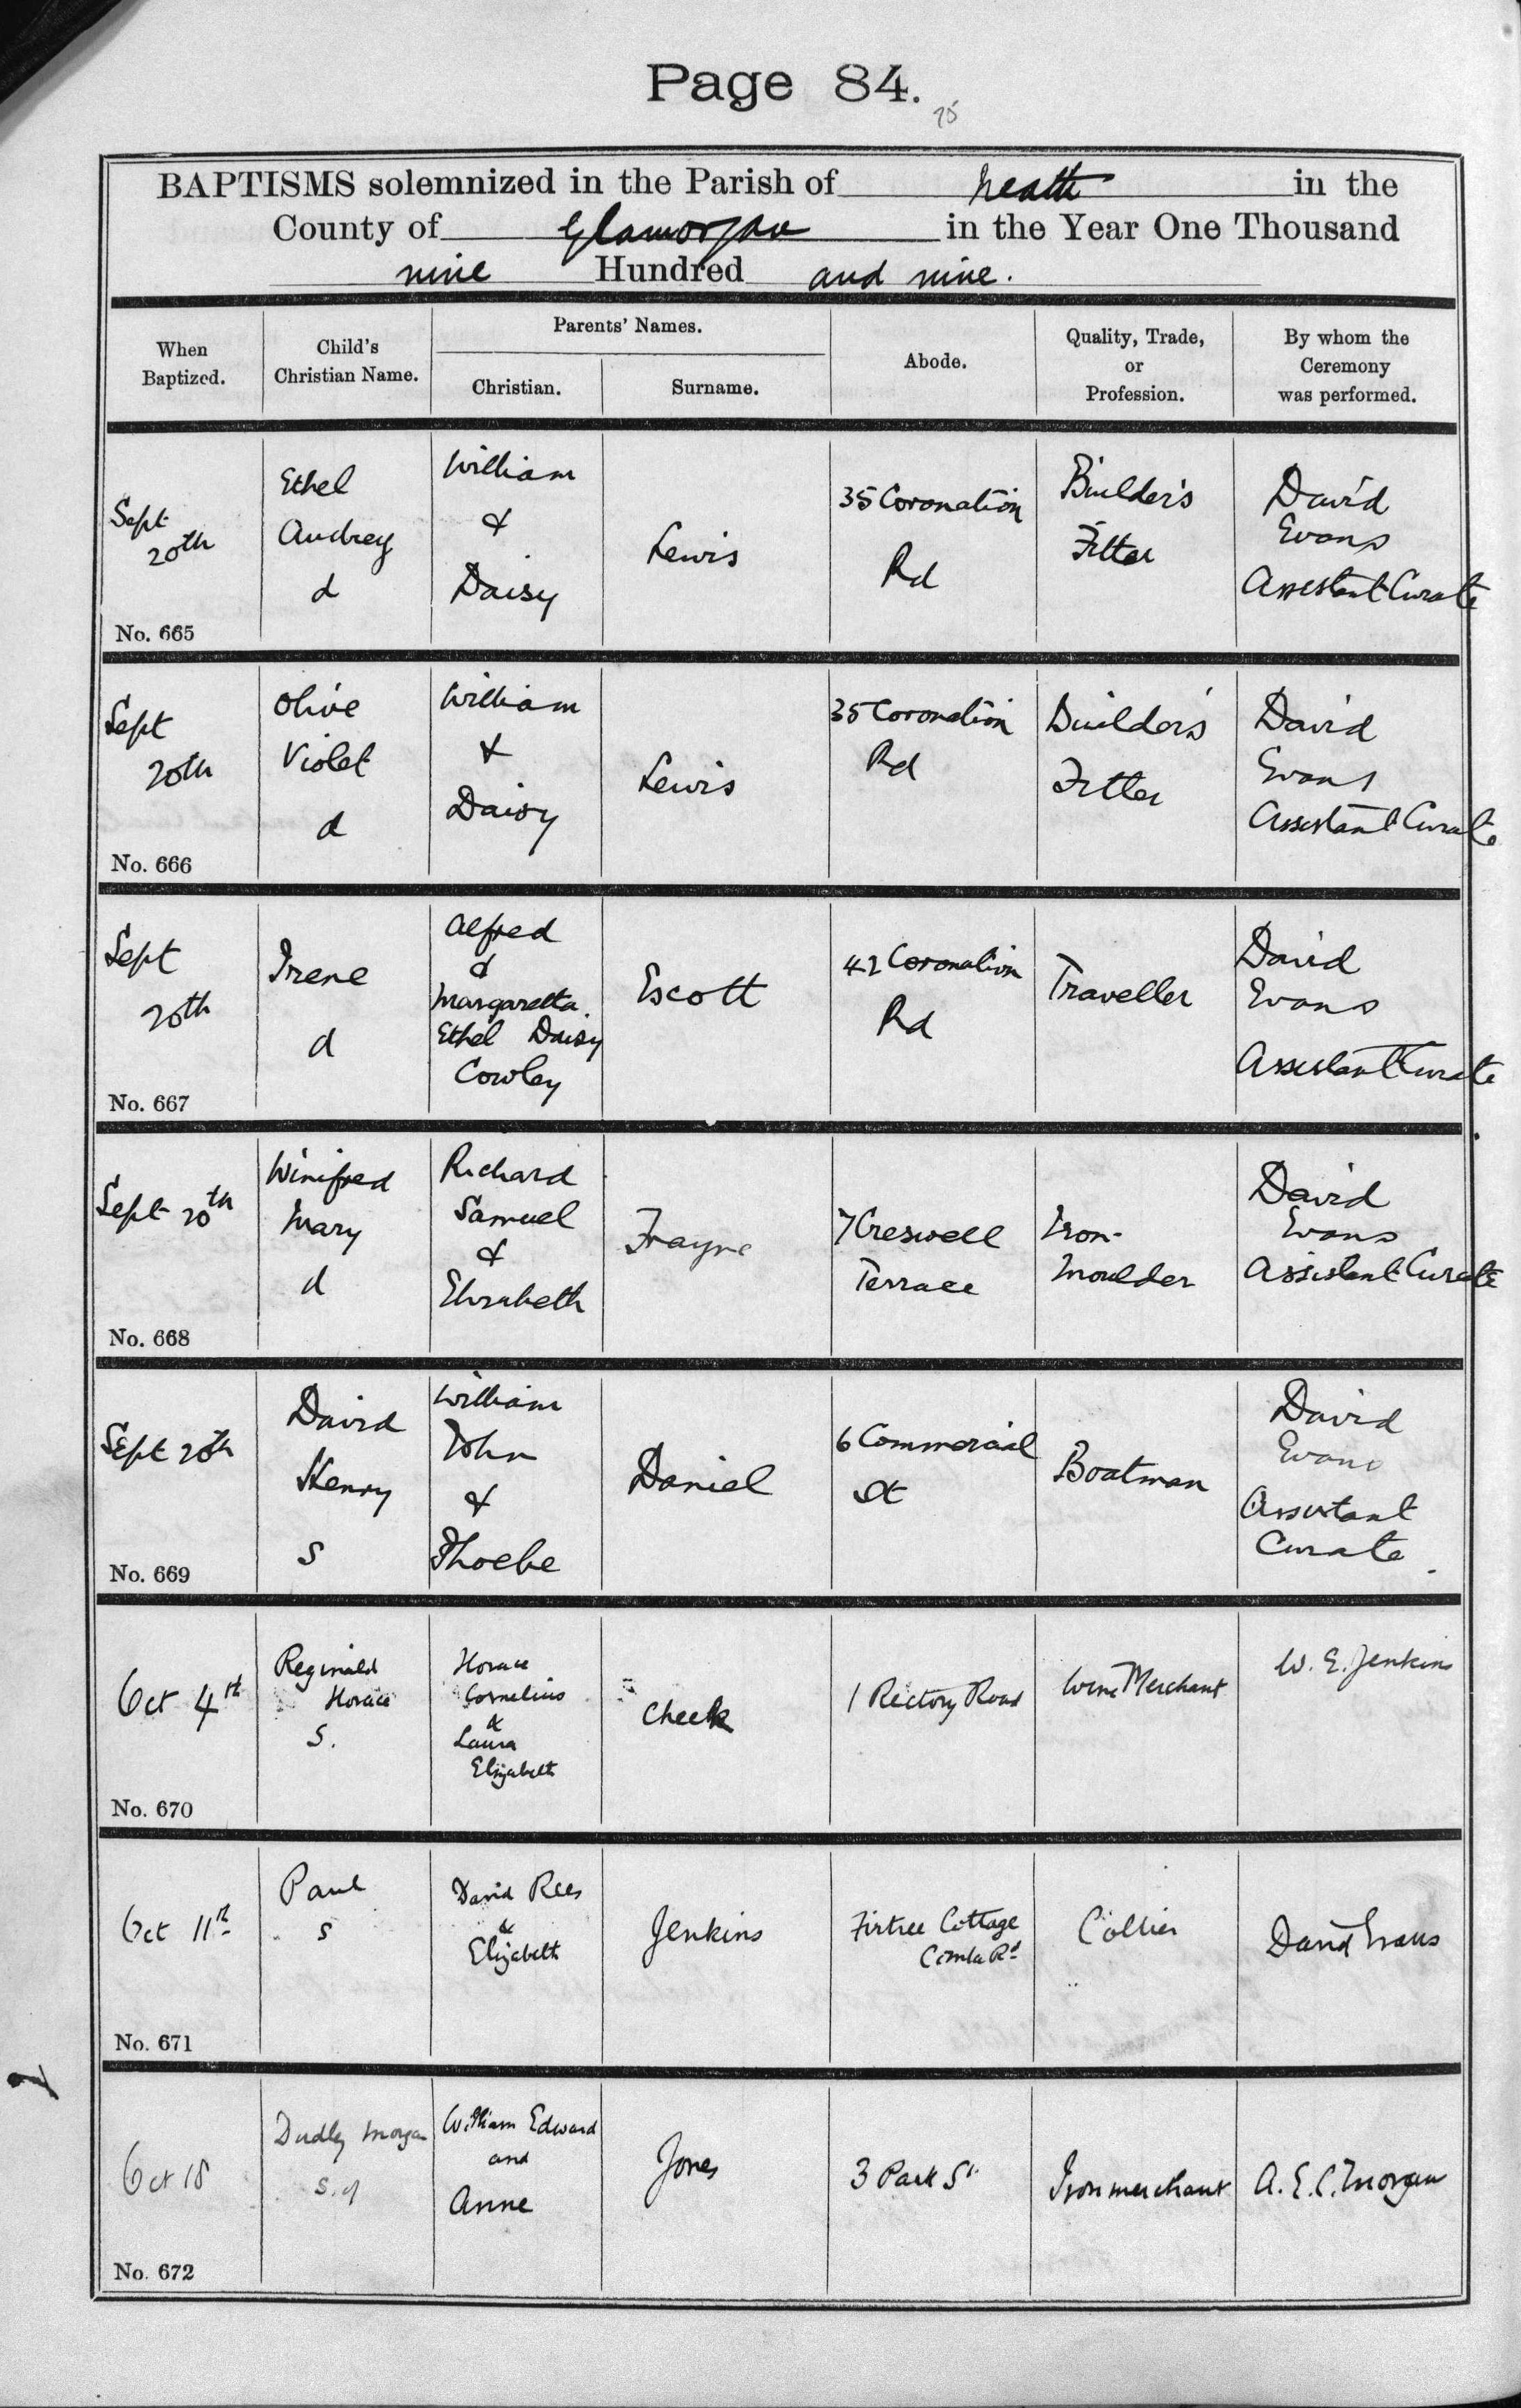 Page 84.
75
BAPTISMS solemnized in the Parish of Neath in the
County of Glamorgan in the Year One Thousand
nine Hundred and nine.
When
Baptized.
Child's
Christian Name.
Parents' Names.
Christian.
Surname.
Abode.
Quality, Trade,
or
Profession.
By whom the
Ceremony
was performed.
Sept
20th
No. 665
Ethel
Audrey
d
William
&
Daisy
Lewis
35 Coronation
Rd
Builder's
Fitter
David
Evans
Assistant Curate
Sept
20th
No. 666
Olive
Violet
d
William
&
Daisy
Lewis
35 Coronation
Rd
Builder's
Fitter
David
Evans
Assistant Curate
Sept
20th
No. 667
Irene
d
Alfred
&
Margaretta
Ethel Daisy
Cowley
Escott
42 Coronation
Rd
Traveller
David
Evans
Assistant Curate
Sept 20th
No. 668
Winifred
Mary
d
Richard
Samuel
&
Elizabeth
Frayne
7 Creswell
Terrace
Iron-
Moulder
David
Evans
Assistant Curate
Sept 20th
No. 669
David
Henry
S
William
John
&
Phoebe
Daniel
6 Commercial
St
Boatman
David
Evans
Assistant
Curate
Oct 4th
No. 670
Reginald
Horace
S.
Horace
Cornelius
&
Laura
Elizabeth
Cheek
1 Rectory Road
Wine Merchant
W. E. Jenkins
Oct 11th
No. 671
Paul
S
David Rees
&
Elizabeth
Jenkins
Firtree Cottage
Cimla Rd
Collier
David Evans
Oct 18
No. 672
Dudley Morgan
S. of
William Edward
and
Anne
Jones
3 Park St
Ironmerchant
A. E. C. Morgan